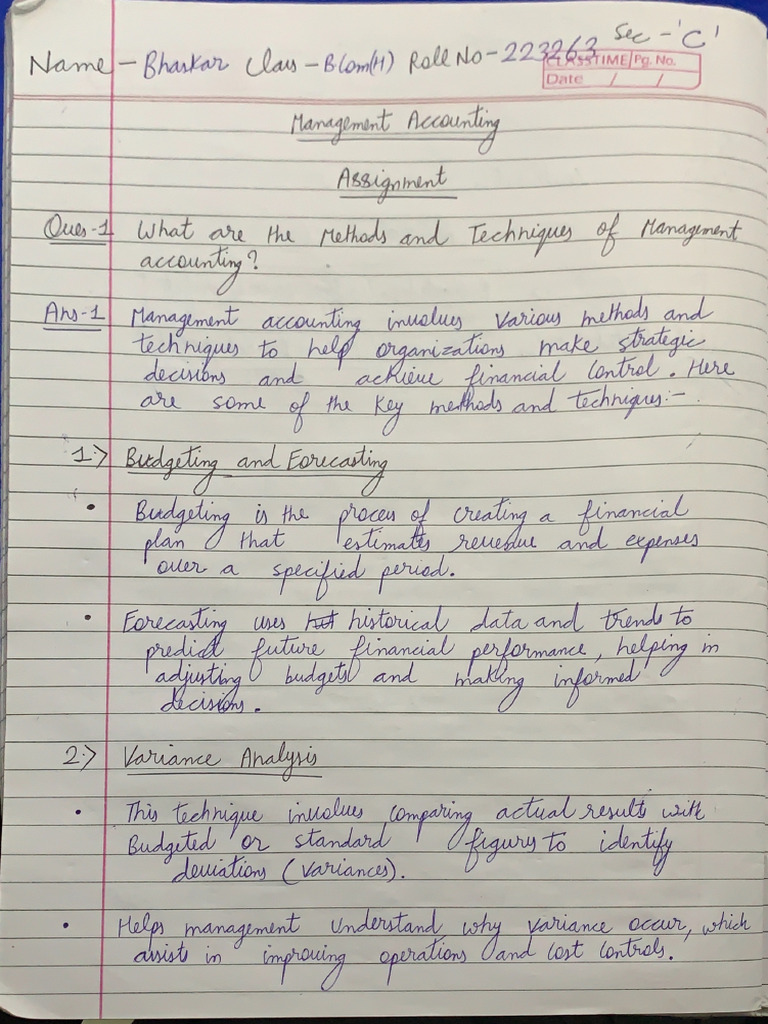 Sec - 'C'
Name - Bhaskar Class - B Com(H) Roll No - 223263
CLASSTIME Pg. No.
Date / /
Management Accounting
Assignment
Ques-1 What are the Methods and Techniques of Management
accounting?
Ans-1 Management accounting involves various methods and
techniques to help organizations make strategic
decisions and achieve financial control. Here
are some of the key methods and techniques:-
1:> Budgeting and Forecasting
• Budgeting is the process of creating a financial
plan that estimates revenue and expenses
over a specified period.
• Forecasting uses historical data and trends to
predict future financial performance, helping in
adjusting budgets and making informed
decisions.
2:> Variance Analysis
• This technique involves comparing actual results with
Budgeted or standard figures to identify
deviations (variances).
• Helps management understand why variance occur, which
assist in improving operations and cost controls.